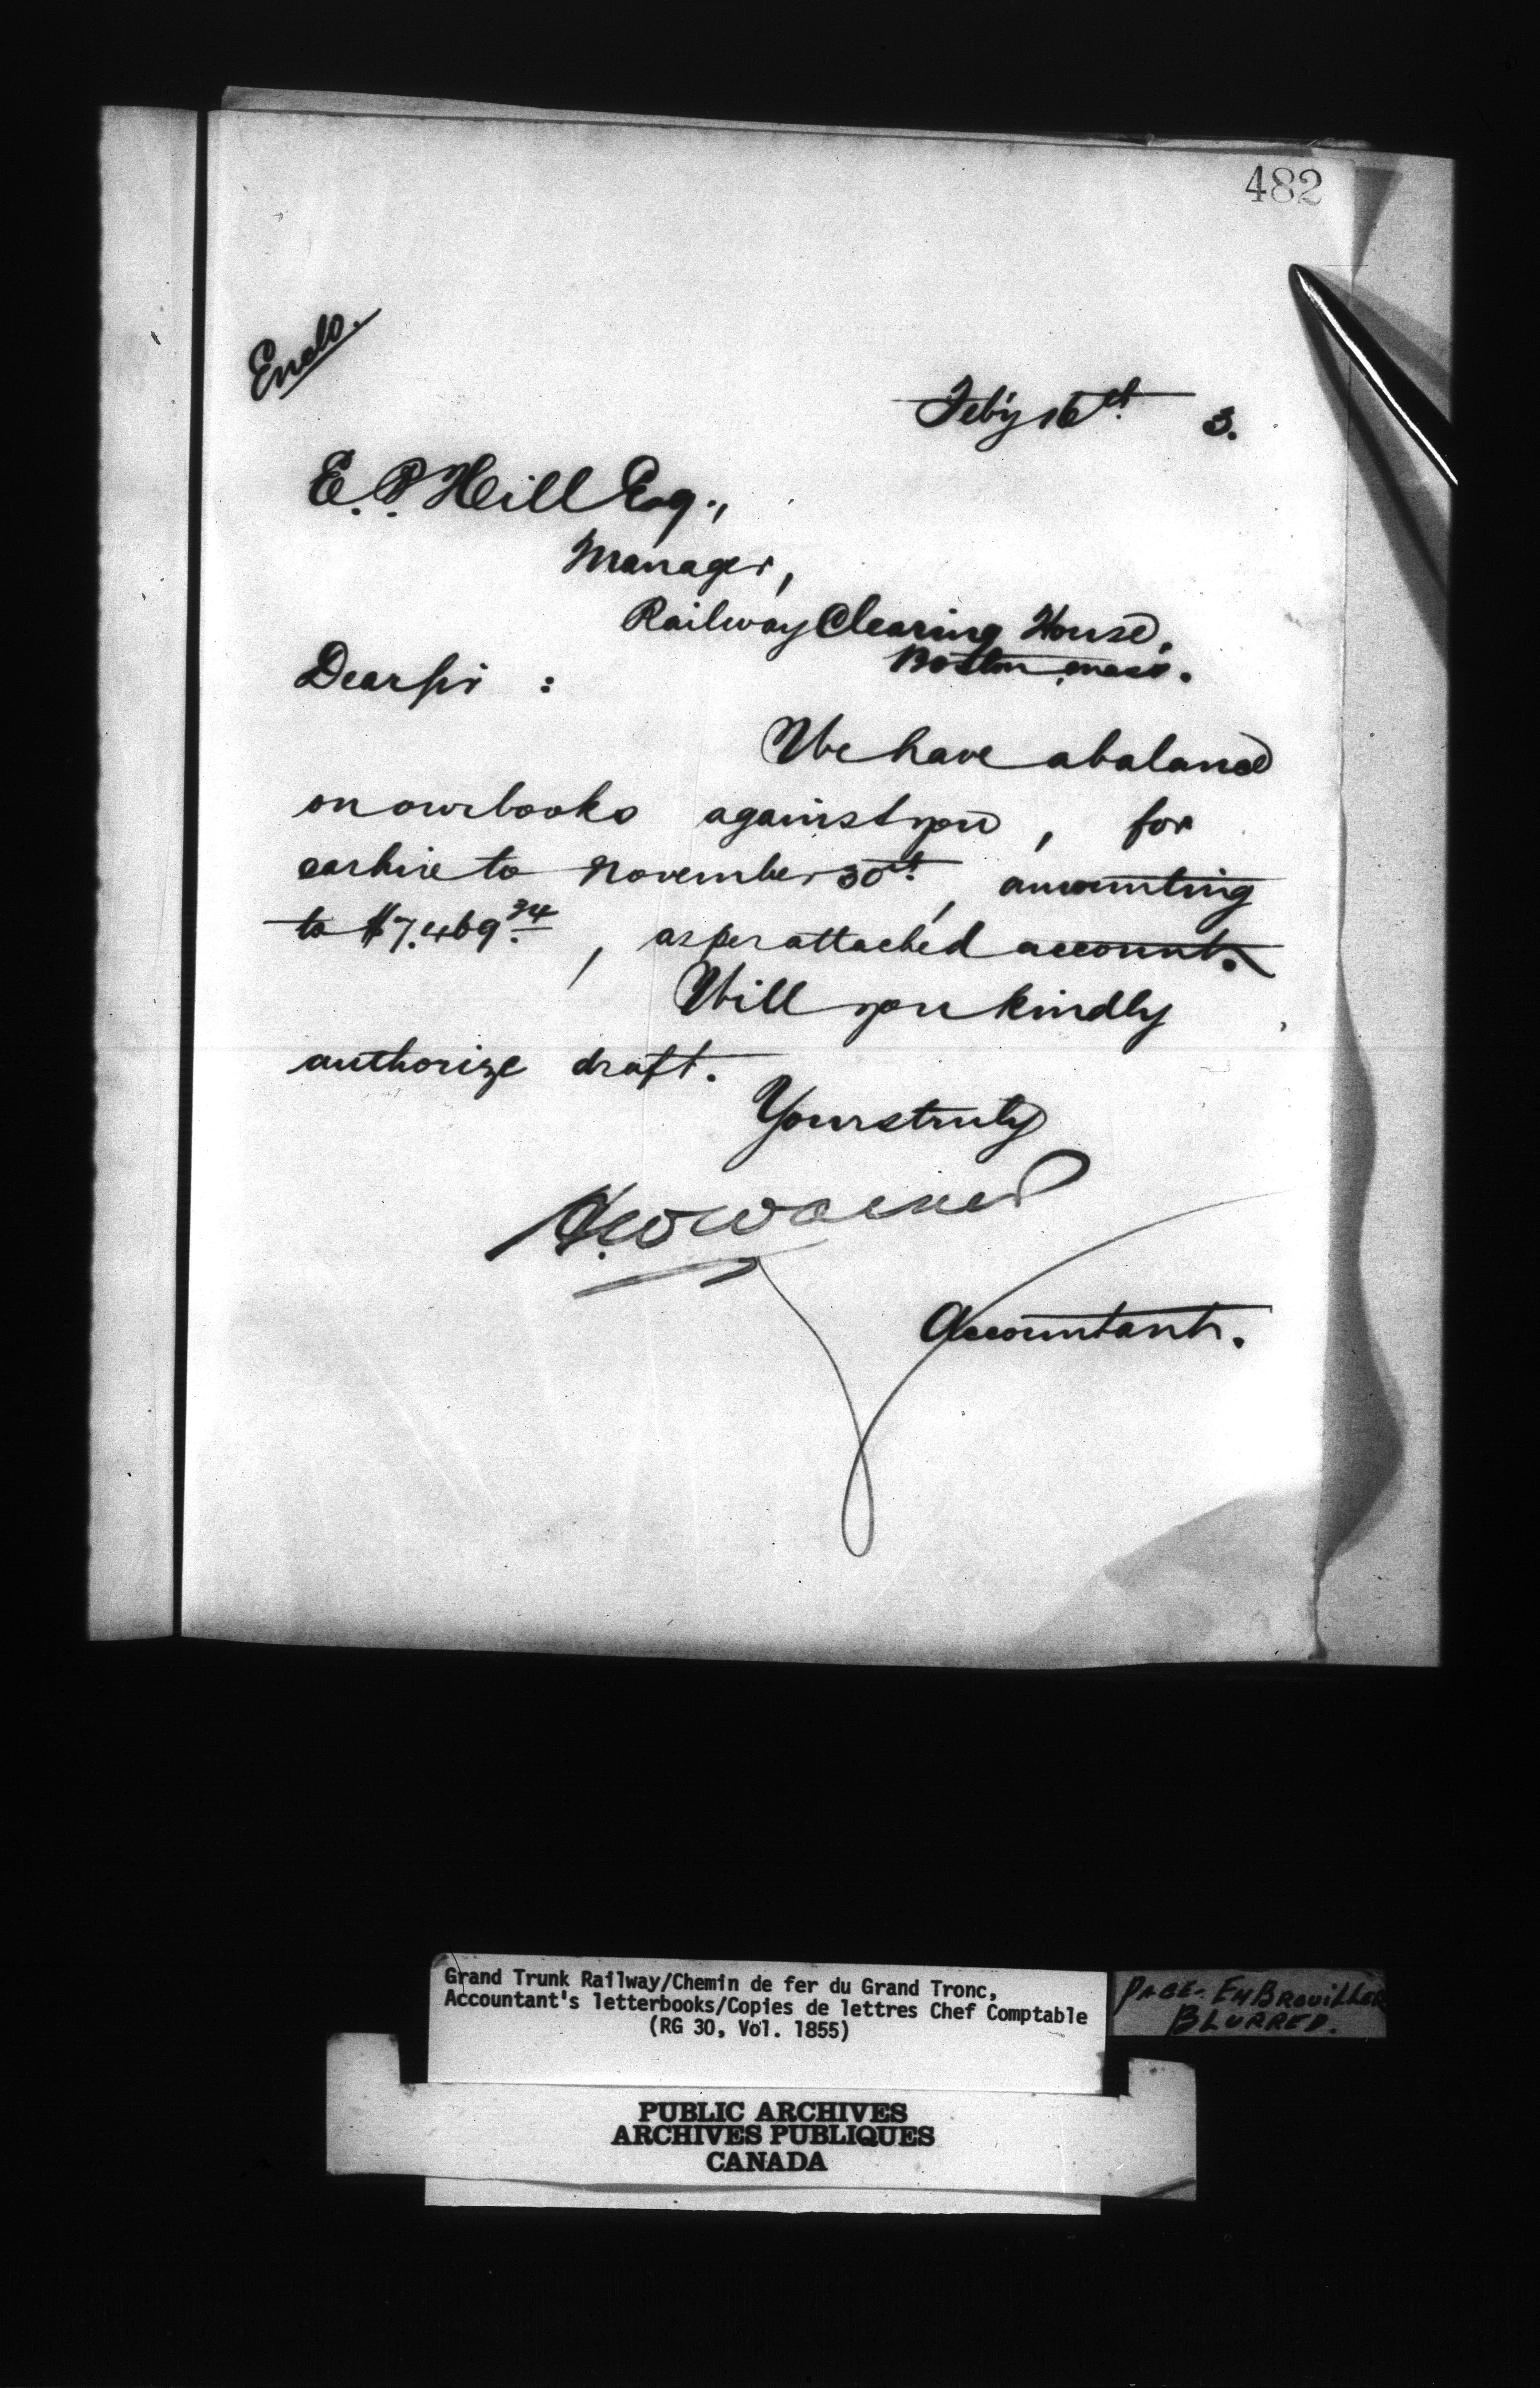 482
Enclo.
Feb'y 16th 3.
E. P. Hill Esq.,
Manager,
Railway Clearing House,
Boston, Mass.
Dear Sir :
We have a balance
on our books against you, for
car hire to November 30th, amounting
to $7,469.34, as per attached account.
Will you kindly
authorize draft.
Yours truly
H. W. Walker
Accountant.
Grand Trunk Railway/Chemin de fer du Grand Tronc,
Accountant's letterbooks/Copies de lettres Chef Comptable
(RG 30, Vol. 1855)
PAGE: EMBROUILLER
BLURRED.
PUBLIC ARCHIVES
ARCHIVES PUBLIQUES
CANADA